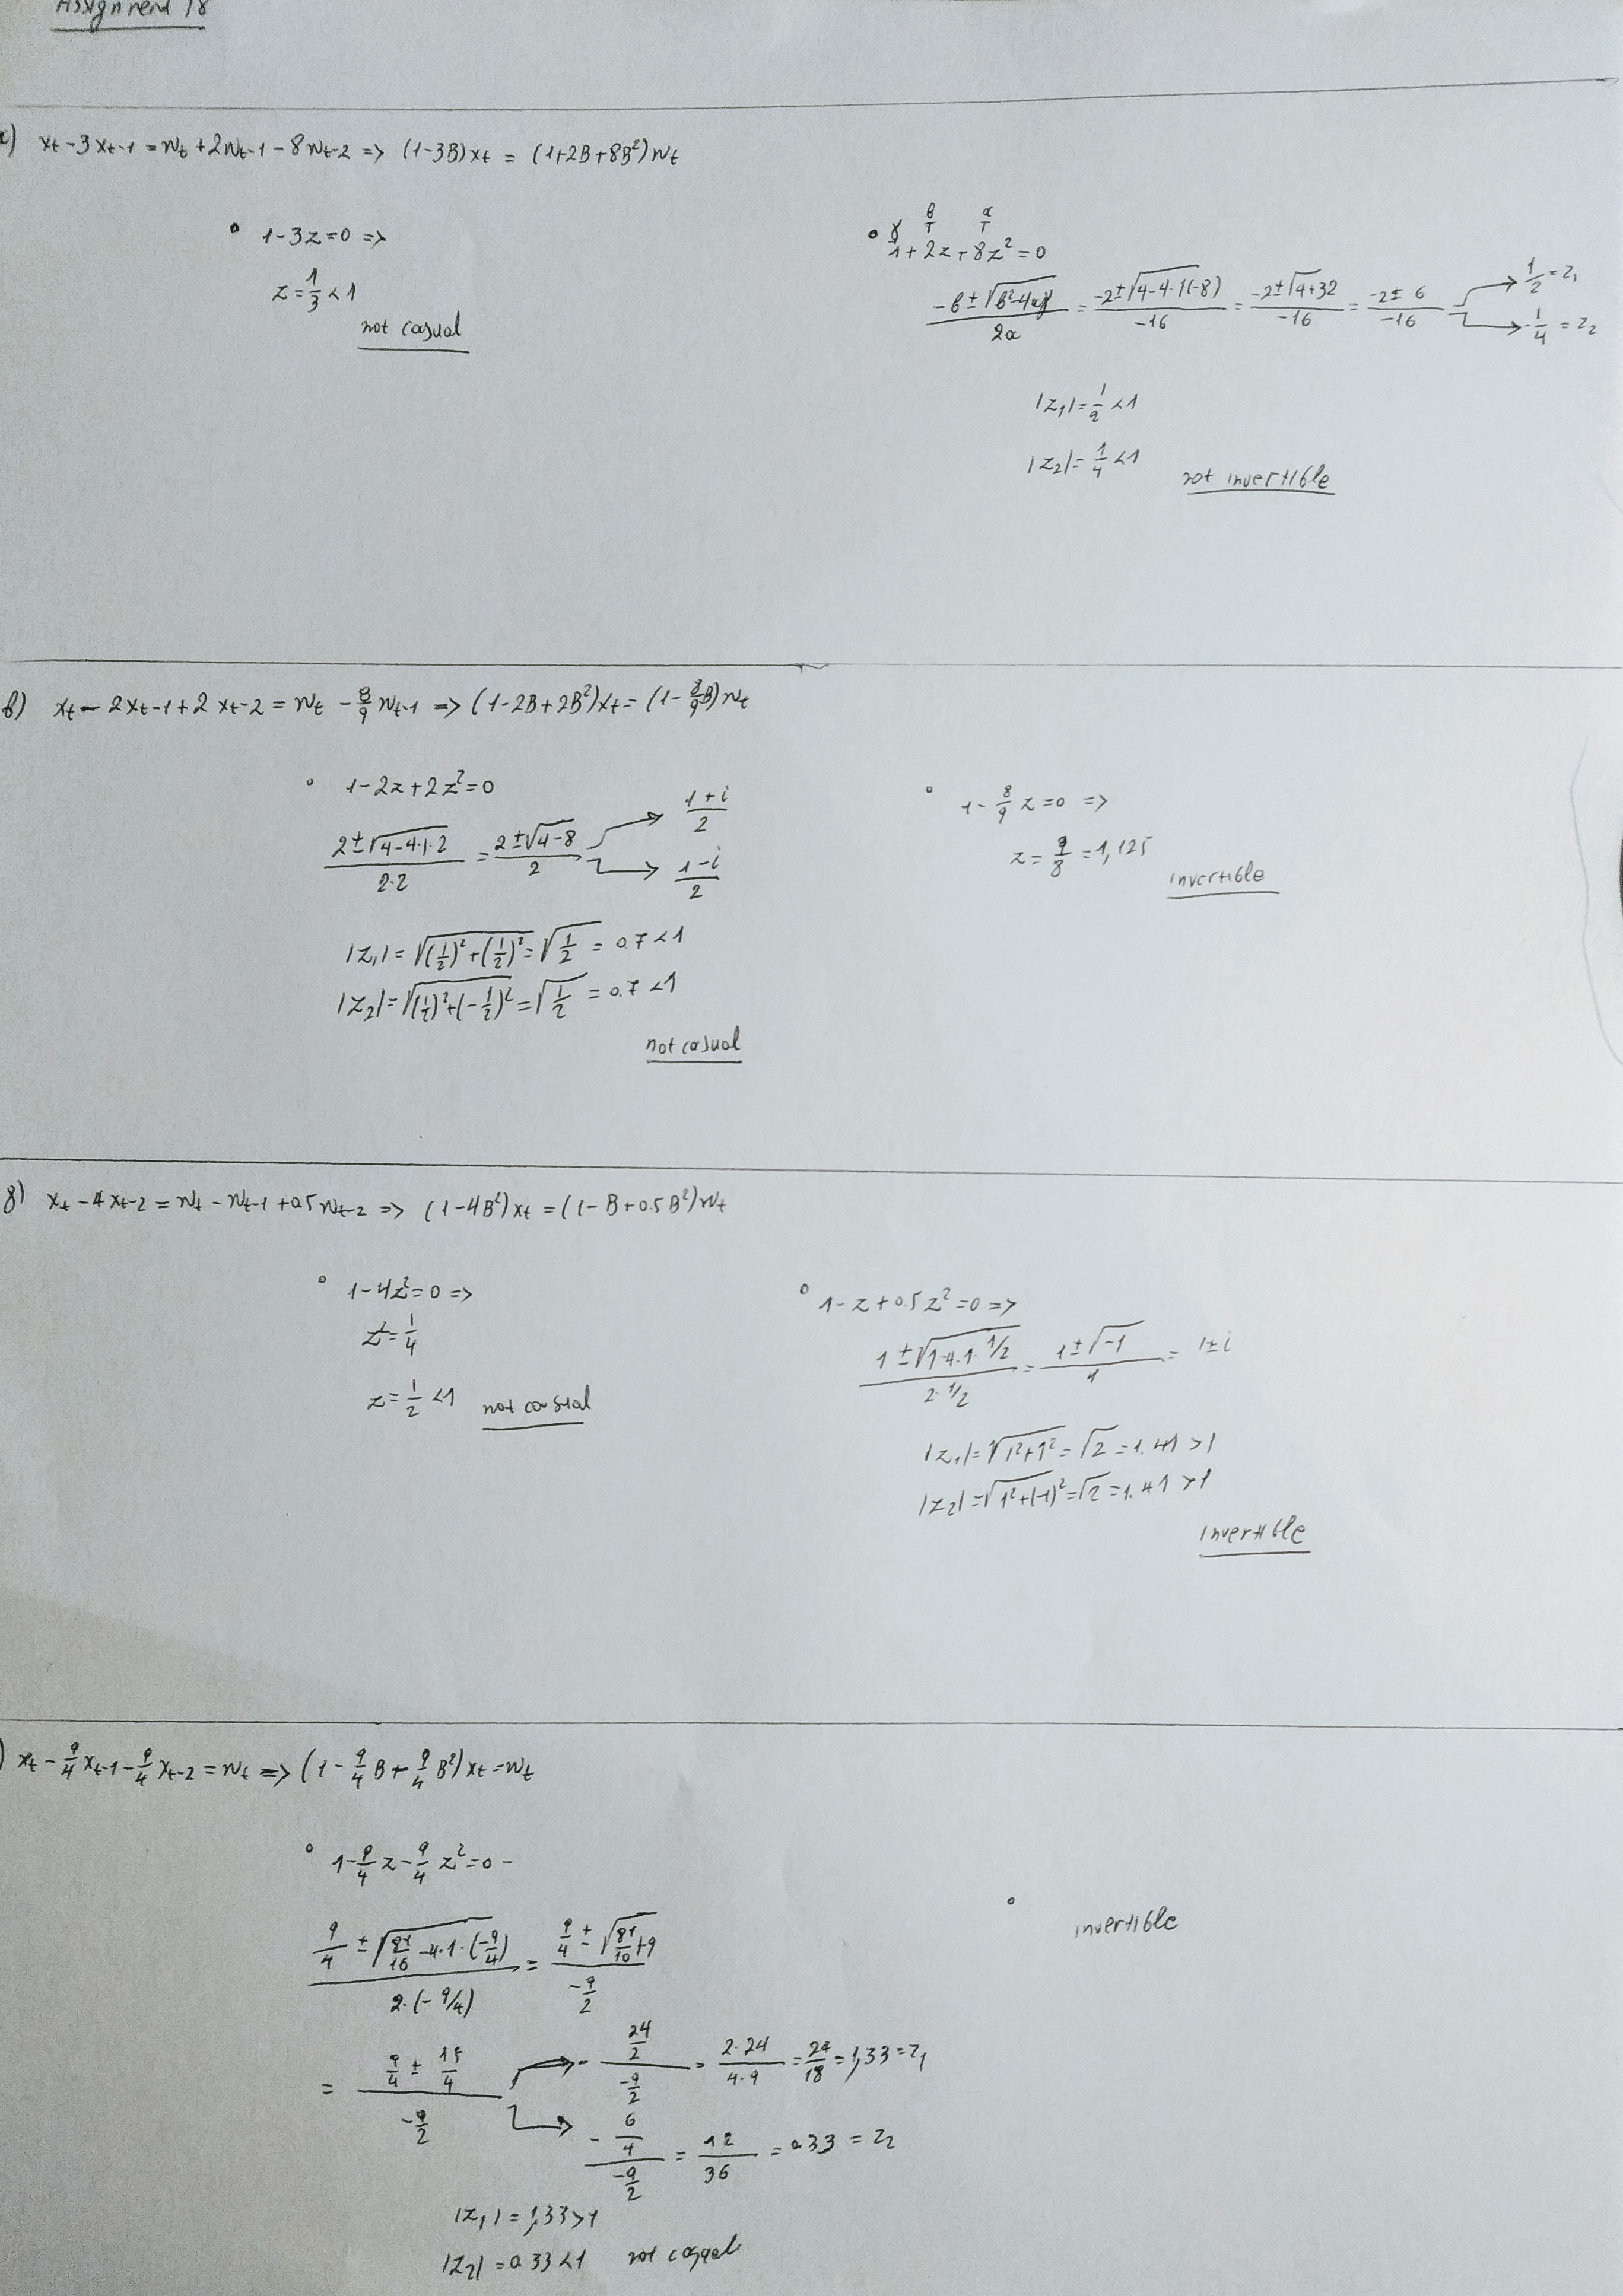 Assignment 18
α) xt - 3xt-1 = wt + 2wt-1 - 8wt-2 => (1-3B)xt = (1+2B+8B²)wt
° 1-3z=0 =>
z = 1/3 < 1
not casual
° γ β α
1+2z+8z²=0
(-β ± √(β²-4αγ))/2α = (-2±√(4-4·1(-8)))/-16 = (-2±√4+32)/-16 = (-2±6)/-16 → 1/2 = z1
→ -1/4 = z2
|z1| = 1/2 < 1
|z2| = 1/4 < 1
not invertible
β) xt - 2xt-1 + 2xt-2 = wt - 8/9 wt-1 => (1-2B+2B²)xt = (1-8/9B)wt
° 1-2z+2z²=0
(2±√(4-4·1·2))/2·2 = (2±√(4-8))/2 → (1+i)/2
→ (1-i)/2
|z1| = √((1/2)²+(1/2)²) = √(1/2) = 0.7 < 1
|z2| = √((1/2)²+(-1/2)²) = √(1/2) = 0.7 < 1
not casual
° 1 - 8/9 z = 0 =>
z = 9/8 = 1,125
invertible
γ) xt - 4xt-2 = wt - wt-1 + 0.5wt-2 => (1-4B²)xt = (1-B+0.5B²)wt
° 1-4z²=0 =>
z² = 1/4
z = 1/2 < 1
not casual
° 1-z+0.5z²=0 =>
(1±√(1-4·1·1/2))/2·1/2 = (1±√-1)/1 = 1±i
|z1| = √(1²+1²) = √2 = 1.41 > 1
|z2| = √(1²+(-1)²) = √2 = 1.41 > 1
invertible
) xt - 9/4 xt-1 - 9/4 xt-2 = wt => (1 - 9/4 B + 9/4 B²)xt = wt
° 1 - 9/4 z - 9/4 z² = 0 -
(9/4 ± √(81/16 - 4·1·(-9/4)))/2·(-9/4) = (9/4 ± √(81/10 + 9))/(-9/2)
= (9/4 ± 15/4)/(-9/2) → - (24/2)/(-9/2) = 2·24/4·9 = 24/18 = 1,33 = z1
→ (-6/4)/(-9/2) = 12/36 = 0.33 = z2
|z1| = 1,33 > 1
|z2| = 0.33 < 1 not casual
° invertible